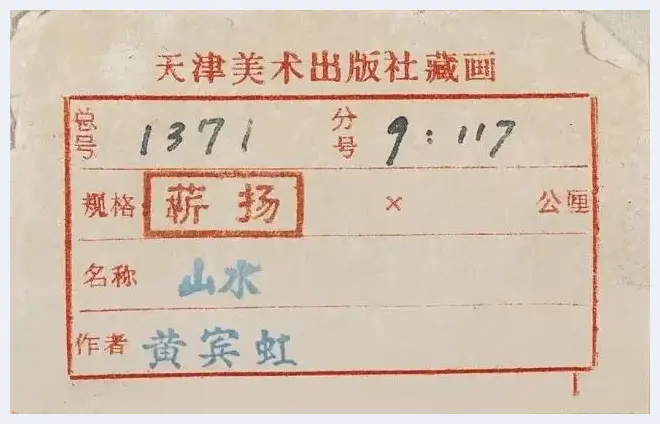 天津美术出版社藏画
总号 1371 分号 9:117
规格 蕲扬 × 公厘
名称 山水
作者 黄宾虹